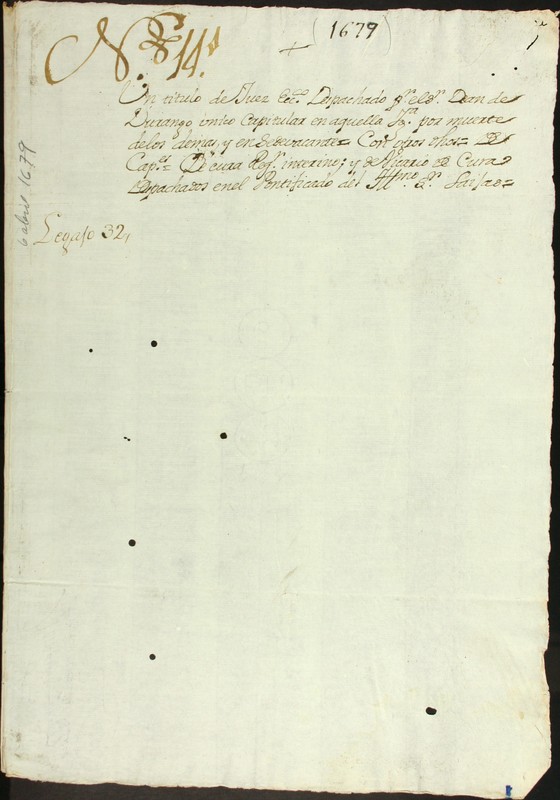 (1679)
N.º 14.
Un titulo de Juez Ecc.º Despachado p.r el S.r Dean de
Durango unico Capitular en aquella Ig.a por muerte
de los demas, y en Sedevacante= Con otros
Cap.n De cura Ref.r interino; y de Vicario de Cura
despachados en el Pontificado del Ill.mo S.r
Legajo 32,
6 abril 1679
1